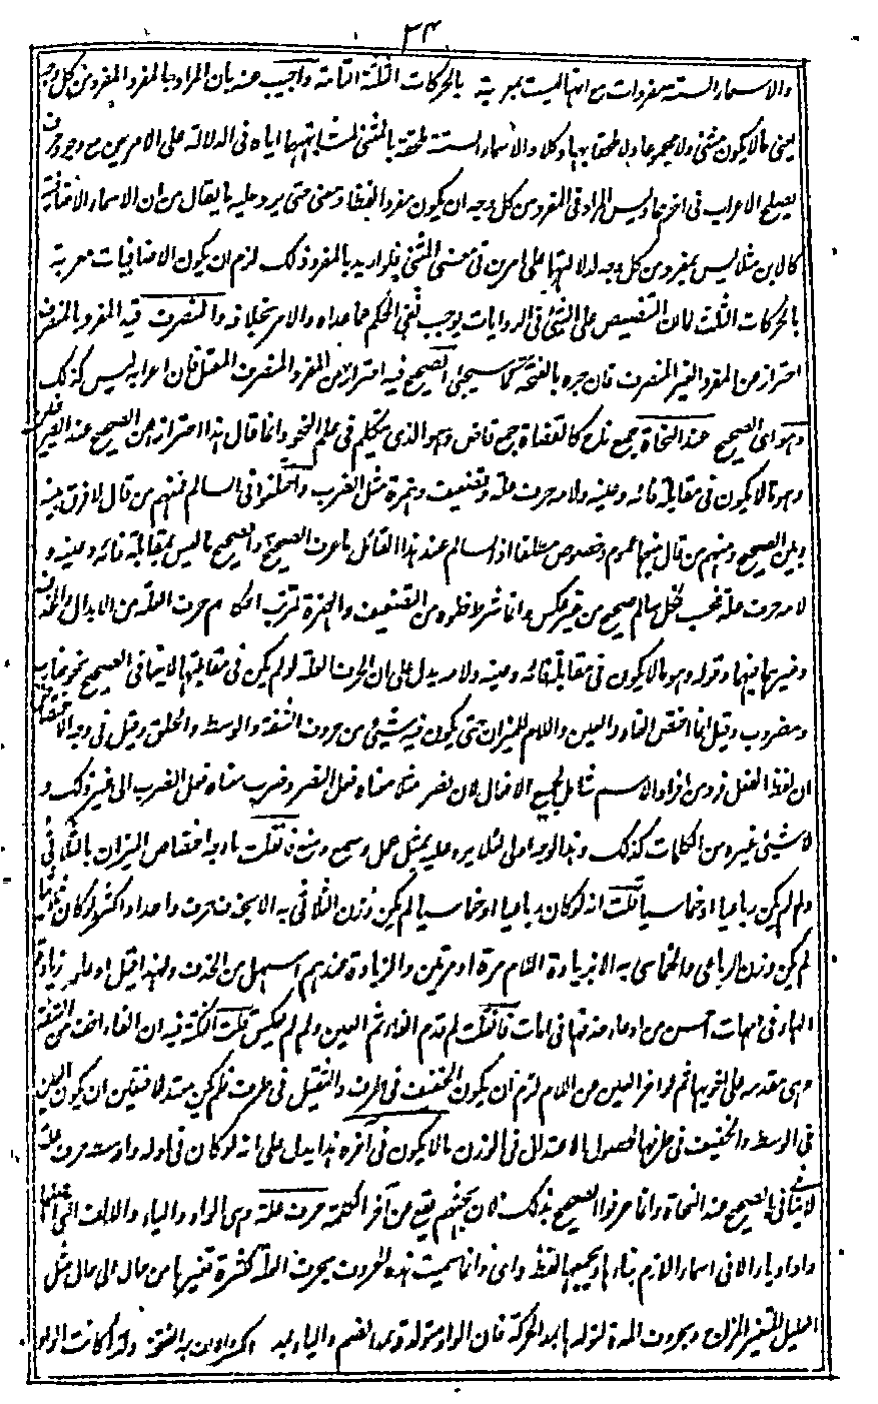 ٢٣
والاسماء الستة مفردات مع انها ليست بمعربة بالحركات الثلثة التامة واجيب عنه بان المراد بالمفرد المفرد من كل وجه
يعنى ما لا يكون مثنى ولا مجموعا ولا ملحقا بهما وكلا والاسماء الستة ملحقة بالمثنى لمشابهتها اياه فى الدلالة على الامرين مع وجود حرف
يصلح الاعراب فى اخرها وليس المراد فى المفرد من كل وجه ان يكون مفرد اللفظ او معنى حتى يرد عليه ما يقال من ان الاسماء الاضافية
كالابن مثلا ليس بمفرد من كل وجه لدلالتها على امرين فى معنى المثنى فلو اريد بالمفرد ذلك لزم ان يكون الاضافيات معربة
بالحركات الثلث لان التخصيص على الشئ فى الروايات يوجب نفى الحكم عما عداه والامر بخلافه والمنصرف قيد المفرد بالمنصرف
احترازا عن المفرد الغير المنصرف فان جره بالفتحة كما سيجئ الصحيح فيه احتراز عن المفرد المنصرف المعتل فان اعرابه ليس كذلك
وهو اى الصحيح عند النحاة جمع ناح كالقضاة جمع قاض وهو الذى يتكلم فى علم النحو وانما قال هذا احترازا عن الصحيح عند الصرفيين
وهو ما لا يكون فى مقابلة فائه وعينه ولامه حرف علة وتضعيف وهمزة مثل الضرب واختلفوا فى السالم فمنهم من قال لا فرق بينه
وبين الصحيح ومنهم من قال بينهما عموم وخصوص مطلقا اذ السالم عند هذا القائل ما عرف الصحيح والصحيح ما ليس بمقابلة فائه وعينه و
لامه حرف علة فحسب فكل سالم صحيح من غير عكس وانما شرط خلوه من التضعيف والهمزة لترتب احكام حرف العلة من الابدال والحذف
وغيرها فيهما وقوله وهو ما لا يكون فى مقابلة فائه وعينه ولامه يدل على ان الحرف العلة لو لم يكن فى مقابلتها لا ينافى الصحيح نحو ضارب
ومضروب وقيل انما اختص الفاء والعين واللام للميزان حتى يكون فيه شئ من حروف الشفة والوسط والحلق وقيل فى وجه الاختصاص
ان لفظ الفعل فرد من افراد الاسم شامل لجميع الافعال لان نصر مثلا معناه فعل النصر وضرب معناه فعل الضرب الى غير ذلك و
لا شئ غيره من الكلمات كذلك وهذا الوجه اولى لئلا يرد عليه بمثل عمل وسمع ومنع فان قلت ما وجه اختصاص الميزان بالثلاثى
ولم لم يكن رباعيا او خماسيا قلت انه لو كان رباعيا او خماسيا لم يكن وزن الثلاثى به الا بحذف حرف واحد او اكثر ولو كان ثلاثيا
لم يكن وزن الرباعى والخماسى به الا بزيادة اللام مرة او مرتين والزيادة عندهم اسهل من الحذف ولهذا قيل ادعاء زيادة
الهاء فى امهات احسن من ادعاء حذفها فى امات فان قلت لم قدم الفاء ثم العين ولم لم يعكس قلت النكتة فيه ان الفاء اخف من الشفة
وهى مقدمة على اخويها ثم لو اخر العين عن اللام لزم ان يكون الخفيف فى طرف والثقيل فى طرف فلم يكن معتدلا فتعين ان يكون العين
فى الوسط والخفيف فى طرفها لحصول الاعتدال فى الوزن ما لا يكون فى اخره هذا يدل على انه لو كان فى اوله او وسطه حرف علة
لا ينافى الصحيح عند النحاة وانما عرفوا الصحيح بذلك لان بحثهم يقع عن آخر الكلمة حرف علة وهى الواو والياء والالف التى اصلها
واو او ياء الا فى اسماء اللازم بناءها ويجمعها لفظ واى وانما سميت هذه الحروف بحروف العلة لكثرة تغيرها من حال الى حال مثل
العليل المتغير المزاج وبحروف المد ة لتولدها بمد الحركة فان الواو متولدة بمد الضم والياء بمد الكسر والالف بمد الفتح ولما كانت الواو